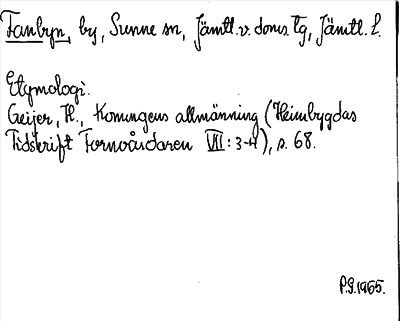 Fanbyn, by, Sunne sn, Jämtl. v. doms. tg, Jämtl. l.
Etymologi.
Geijer, H., Konungens allmänning (Heimbygdas
Tidskrift Fornvårdaren VII: 3-4), s. 68.
P.G. 1965.